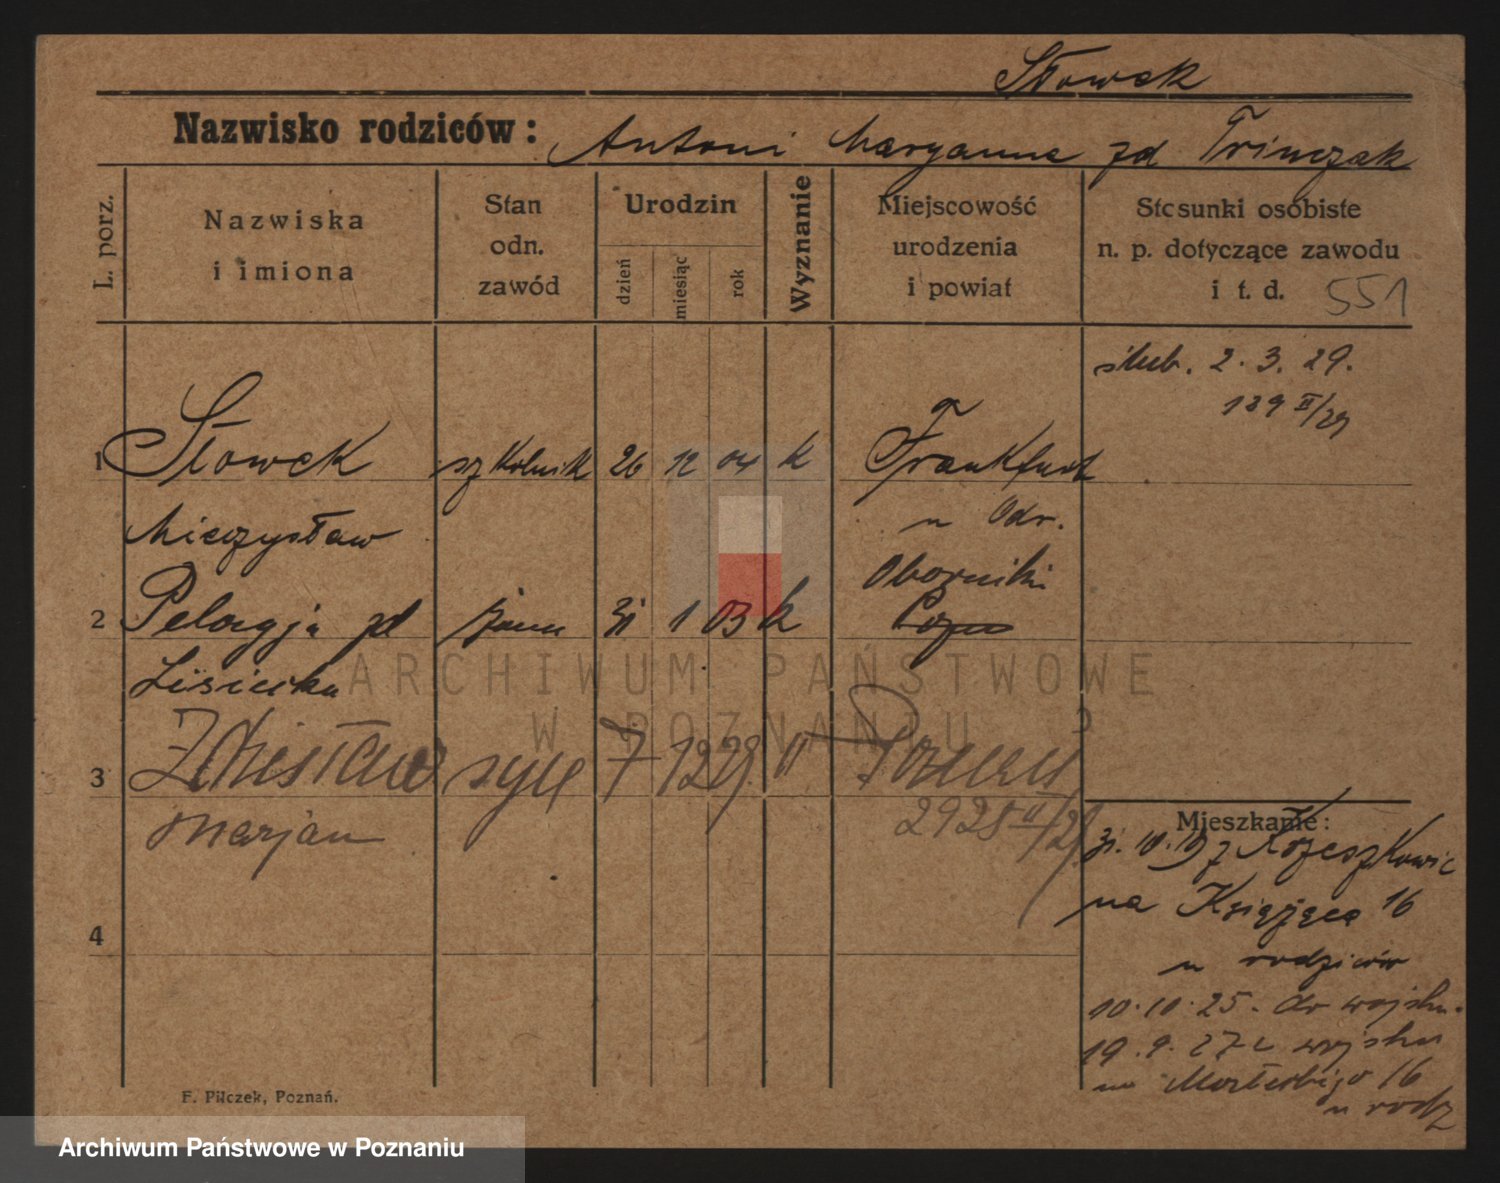 Słowek
Nazwisko rodziców: Antoni Maryanna zd Trinczak
L. porz.
Nazwiska
i imiona
Stan
odn.
zawód
Urodzin
dzień
miesiąc
rok
Wyznanie
Miejscowość
urodzenia
i powiat
Stosunki osobiste
n. p. dotyczące zawodu
i t. d. 551
ślub. 2. 3. 29.
139 II/29
1 Słowek szkolnik 26 12 04 k Frankfurt
Mieczysław n Odr.
Oborniki
2 Pelagja zd żona 31 1 03 k Pozn
Lisiecka
3 Zdzisław syn 7 12 29 Poznań
Marjan 2925 II/29
4
Mieszkanie:
31. 10. 19 z Krzeszkowic
na Książęca 16
u rodziców
10. 10. 25. do wojska.
19. 9. 27 z wojska
na 16
u rodz
F. Pilczek, Poznań.
ARCHIWUM PAŃSTWOWE
W POZNANIU
Archiwum Państwowe w Poznaniu